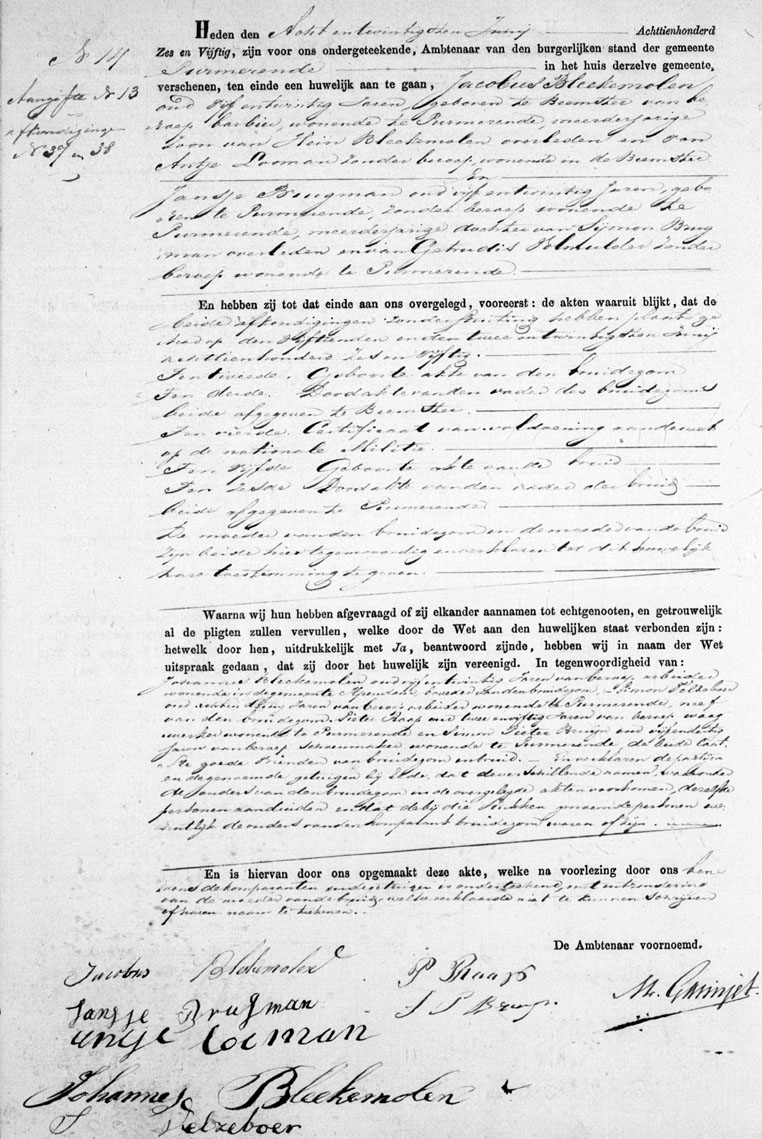 N 14
Aangifte N 13
afkondiging
N 37 en 38
Heden den Acht entwintigsten Junij Achttienhonderd
Zes en Vijftig, zijn voor ons ondergeteekende, Ambtenaar van den burgerlijken stand der gemeente
Purmerende in het huis derzelve gemeente,
verschenen, ten einde een huwelijk aan te gaan, Jacobus Bleekemolen
oud vijf entwintig Jaren, geboren te Beemster van be
roep barbier, wonende te Purmerende, meerderjarige
zoon van Hein Bleekemolen overleden en van
Antje Looman zonder beroep, wonende in de Beemster
En
Jansje Brugman oud vijf entwintig Jaren, gebo
ren te Purmerende, zonder beroep wonende te
Purmerende, meerderjarige dochter van Sijmon Brug
man overleden en van Getrudis zonder
beroep wonende te Purmerende.
En hebben zij tot dat einde aan ons overgelegd, vooreerst: de akten waaruit blijkt, dat de
beide afkondigingen zonder stuiting hebben plaats ge
had op den vijftienden en den twee entwintigsten Junij
achttienhonderd Zes en Vijftig.
Ten tweede. Geboorte akte van den bruidegom
Ten derde. Doodakte van den vader des bruidegoms
beide afgegeven te Beemster.
Ten vierde. Certificaat van voldoening aan de wet
op de nationale Militie.
Ten vijfde Geboorte akte van de bruid
Ten zesde Doodakte van den vader der bruid
beide afgegeven te Purmerende
De moeder van den bruidegom en de moeder van de bruid
zijn beide hier tegenwoordig en verklaren tot dit huwelijk
hare toestemming te geven.
Waarna wij hun hebben afgevraagd of zij elkander aannamen tot echtgenooten, en getrouwelijk
al de pligten zullen vervullen, welke door de Wet aan den huwelijken staat verbonden zijn:
hetwelk door hen, uitdrukkelijk met Ja, beantwoord zijnde, hebben wij in naam der Wet
uitspraak gedaan, dat zij door het huwelijk zijn vereenigd. In tegenwoordigheid van:
Johannes Bleekemolen oud Jaren van beroep arbeider
wonende in de gemeente Ilpendam broeder van den bruidegom, Simon Pelzeboer
oud Jaren van beroep arbeider wonende te Purmerende, neef
van den bruidegom. Pieter Raap oud twee en vijftig Jaren van beroep waag
werker wonende te Purmerende en Simon Pieter Bruijn oud
Jaren van beroep schoenmaker wonende te Purmerende, de beide laat
ste goede vrienden van bruidegom en bruid. En verklaren de partijen
en de genoemde getuigen bij Eede, dat de verschillende namen, waaronder
de ouders van den bruidegom in de overgelegde akten voorkomen, dezelfde
personen aanduiden en dat de bij die stukken genoemde personen we
zentlijk de ouders van den komparant bruidegom waren of zijn.
En is hiervan door ons opgemaakt deze akte, welke na voorlezing door ons bene
vens de komparanten en de getuigen is onderteekend, met uitzondering
van de moeder van de bruid, welke verklaarde niet te kunnen schrijven
of haren naam te teekenen.
De Ambtenaar voornoemd.
Jacobus Bleekemolen P Raap
Jansje Brugman S P Bruijn
antje Looman
Johannes Bleekemolen
S Pelzeboer